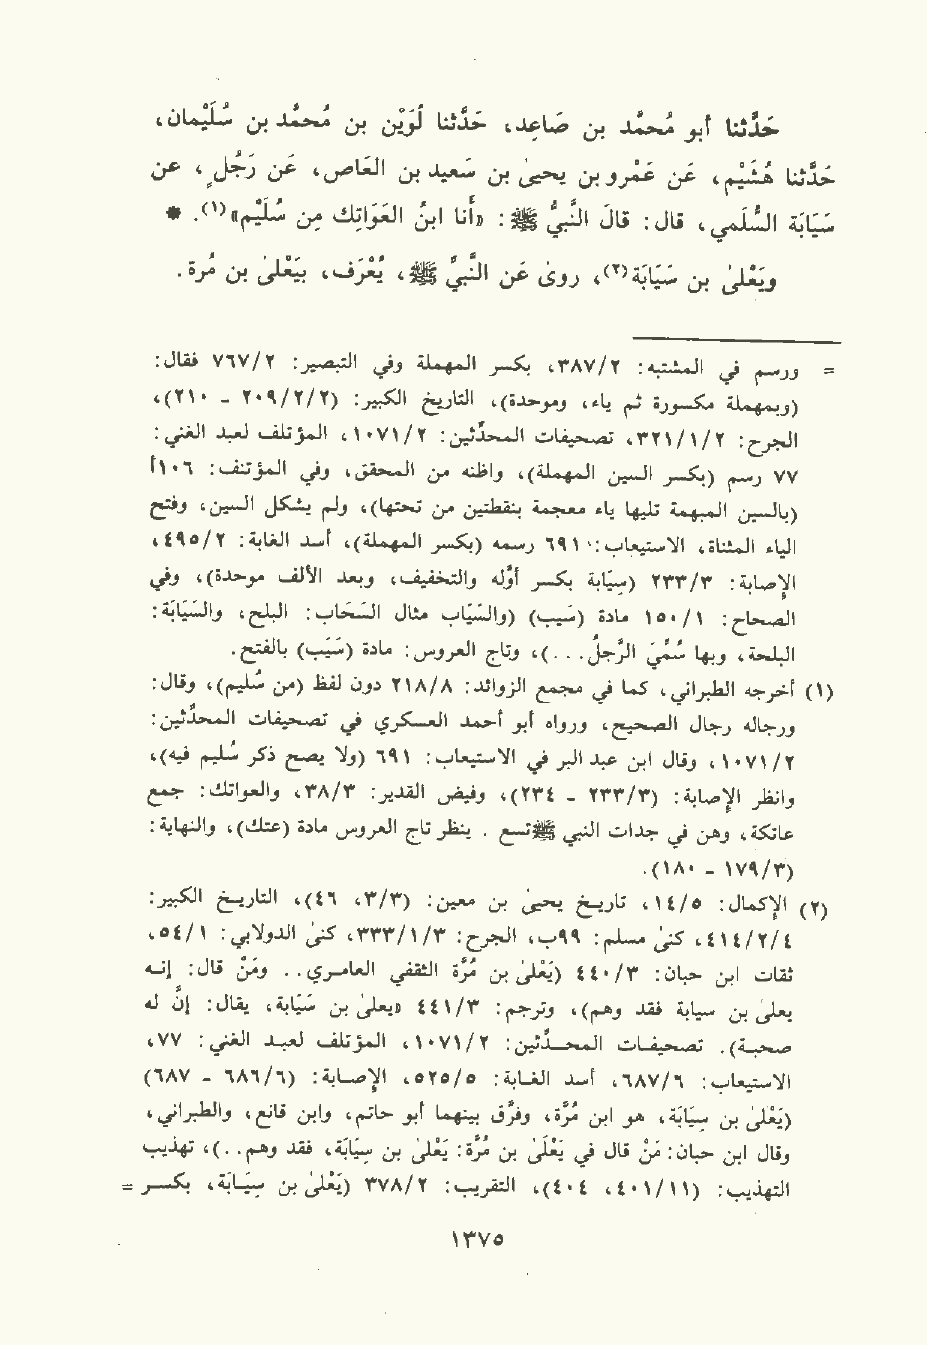 حَدَّثنا أبو مُحمَّد بن صَاعِد، حَدَّثنا لُوَيْن بن مُحمَّد بن سُلَيْمان،
حَدَّثنا هُشَيْم، عَن عَمْرو بن يحيىٰ بن سَعيد بن العَاص، عَن رَجُلٍ، عن
سَيَابَة السُّلَمي، قال: قالَ النَّبيُّ ﷺ: «أَنا ابنُ العَوَاتِك مِن سُلَيْم»(١). *
ويَعْلىٰ بن سَيَابَة(٢)، روىٰ عَن النَّبيِّ ﷺ، يُعْرَف، بيَعْلىٰ بن مُرة.
= ورسم في المشتبه: ٣٨٧/٢، بكسر المهملة وفي التبصير: ٧٦٧/٢ فقال:
(وبمهملة مكسورة ثم ياء، وموحدة)، التاريخ الكبير: (٢٠٩/٢/٢ - ٢١٠)،
الجرح: ٣٢١/١/٢، تصحيفات المحدّثين: ١٠٧١/٢، المؤتلف لعبد الغني:
٧٧ رسم (بكسر السين المهملة)، وأظنه من المحقق، وفي المؤتنف: ١٠٦أ
(بالسين المبهمة تليها ياء معجمة بنقطتين من تحتها)، ولم يشكل السين، وفتح
الياء المثناة، الاستيعاب: ٦٩١ رسمه (بكسر المهملة)، أسد الغابة: ٤٩٥/٢،
الإصابة: ٢٣٣/٣ (سِيَابة بكسر أوّله والتخفيف، وبعد الألف موحدة)، وفي
الصحاح: ١٥٠/١ مادة (سَيب) (والسَّيَاب مثال السَّحَاب: البلح، والسَّيَابَة:
البلحة، وبها سُمِّيَ الرَّجلُ...)، وتاج العروس: مادة (سَيَب) بالفتح.
(١) أخرجه الطبراني، كما في مجمع الزوائد: ٢١٨/٨ دون لفظ (من سُليم)، وقال:
ورجاله رجال الصحيح، ورواه أبو أحمد العسكري في تصحيفات المحدّثين:
١٠٧١/٢، وقال ابن عبد البر في الاستيعاب: ٦٩١ (ولا يصح ذكر سُليم فيه)،
وانظر الإصابة: (٢٣٣/٣ - ٢٣٤)، وفيض القدير: ٣٨/٣، والعواتك: جمع
عاتكة، وهن في جدات النبي ﷺ تسع. ينظر تاج العروس مادة (عتك)، والنهاية:
(١٧٩/٣ - ١٨٠).
(٢) الإكمال: ١٤/٥، تاريخ يحيىٰ بن معين: (٣/٣، ٤٦)، التاريخ الكبير:
٤١٤/٢/٤، كنىٰ مسلم: ٩٩ب، الجرح: ٣٣٣/١/٣، كنىٰ الدولابي: ٥٤/١،
ثقات ابن حبان: ٤٤٠/٣ (يَعْلىٰ بن مُرَّة الثقفي العامري.. ومَنْ قال: إنه
يعلىٰ بن سيابة فقد وهم)، وترجم: ٤٤١/٣ «يعلىٰ بن سَيَابة، يقال: إنَّ له
صحبة). تصحيفات المحدّثين: ١٠٧١/٢، المؤتلف لعبد الغني: ٧٧،
الاستيعاب: ٦٨٧/٦، أسد الغابة: ٥٢٥/٥، الإصابة: (٦٨٦/٦ - ٦٨٧)
(يَعْلىٰ بن سِيَابَة، هو ابن مُرَّة، وفرَّق بينهما أبو حاتم، وابن قانع، والطبراني،
وقال ابن حبان: مَنْ قال في يَعْلَىٰ بن مُرَّة: يَعْلىٰ بن سِيَابَة، فقد وهم..)، تهذيب
التهذيب: (٤٠١/١١، ٤٠٤)، التقريب: ٣٧٨/٢ (يَعْلىٰ بن سِيَابَة، بكسر =
١٣٧٥